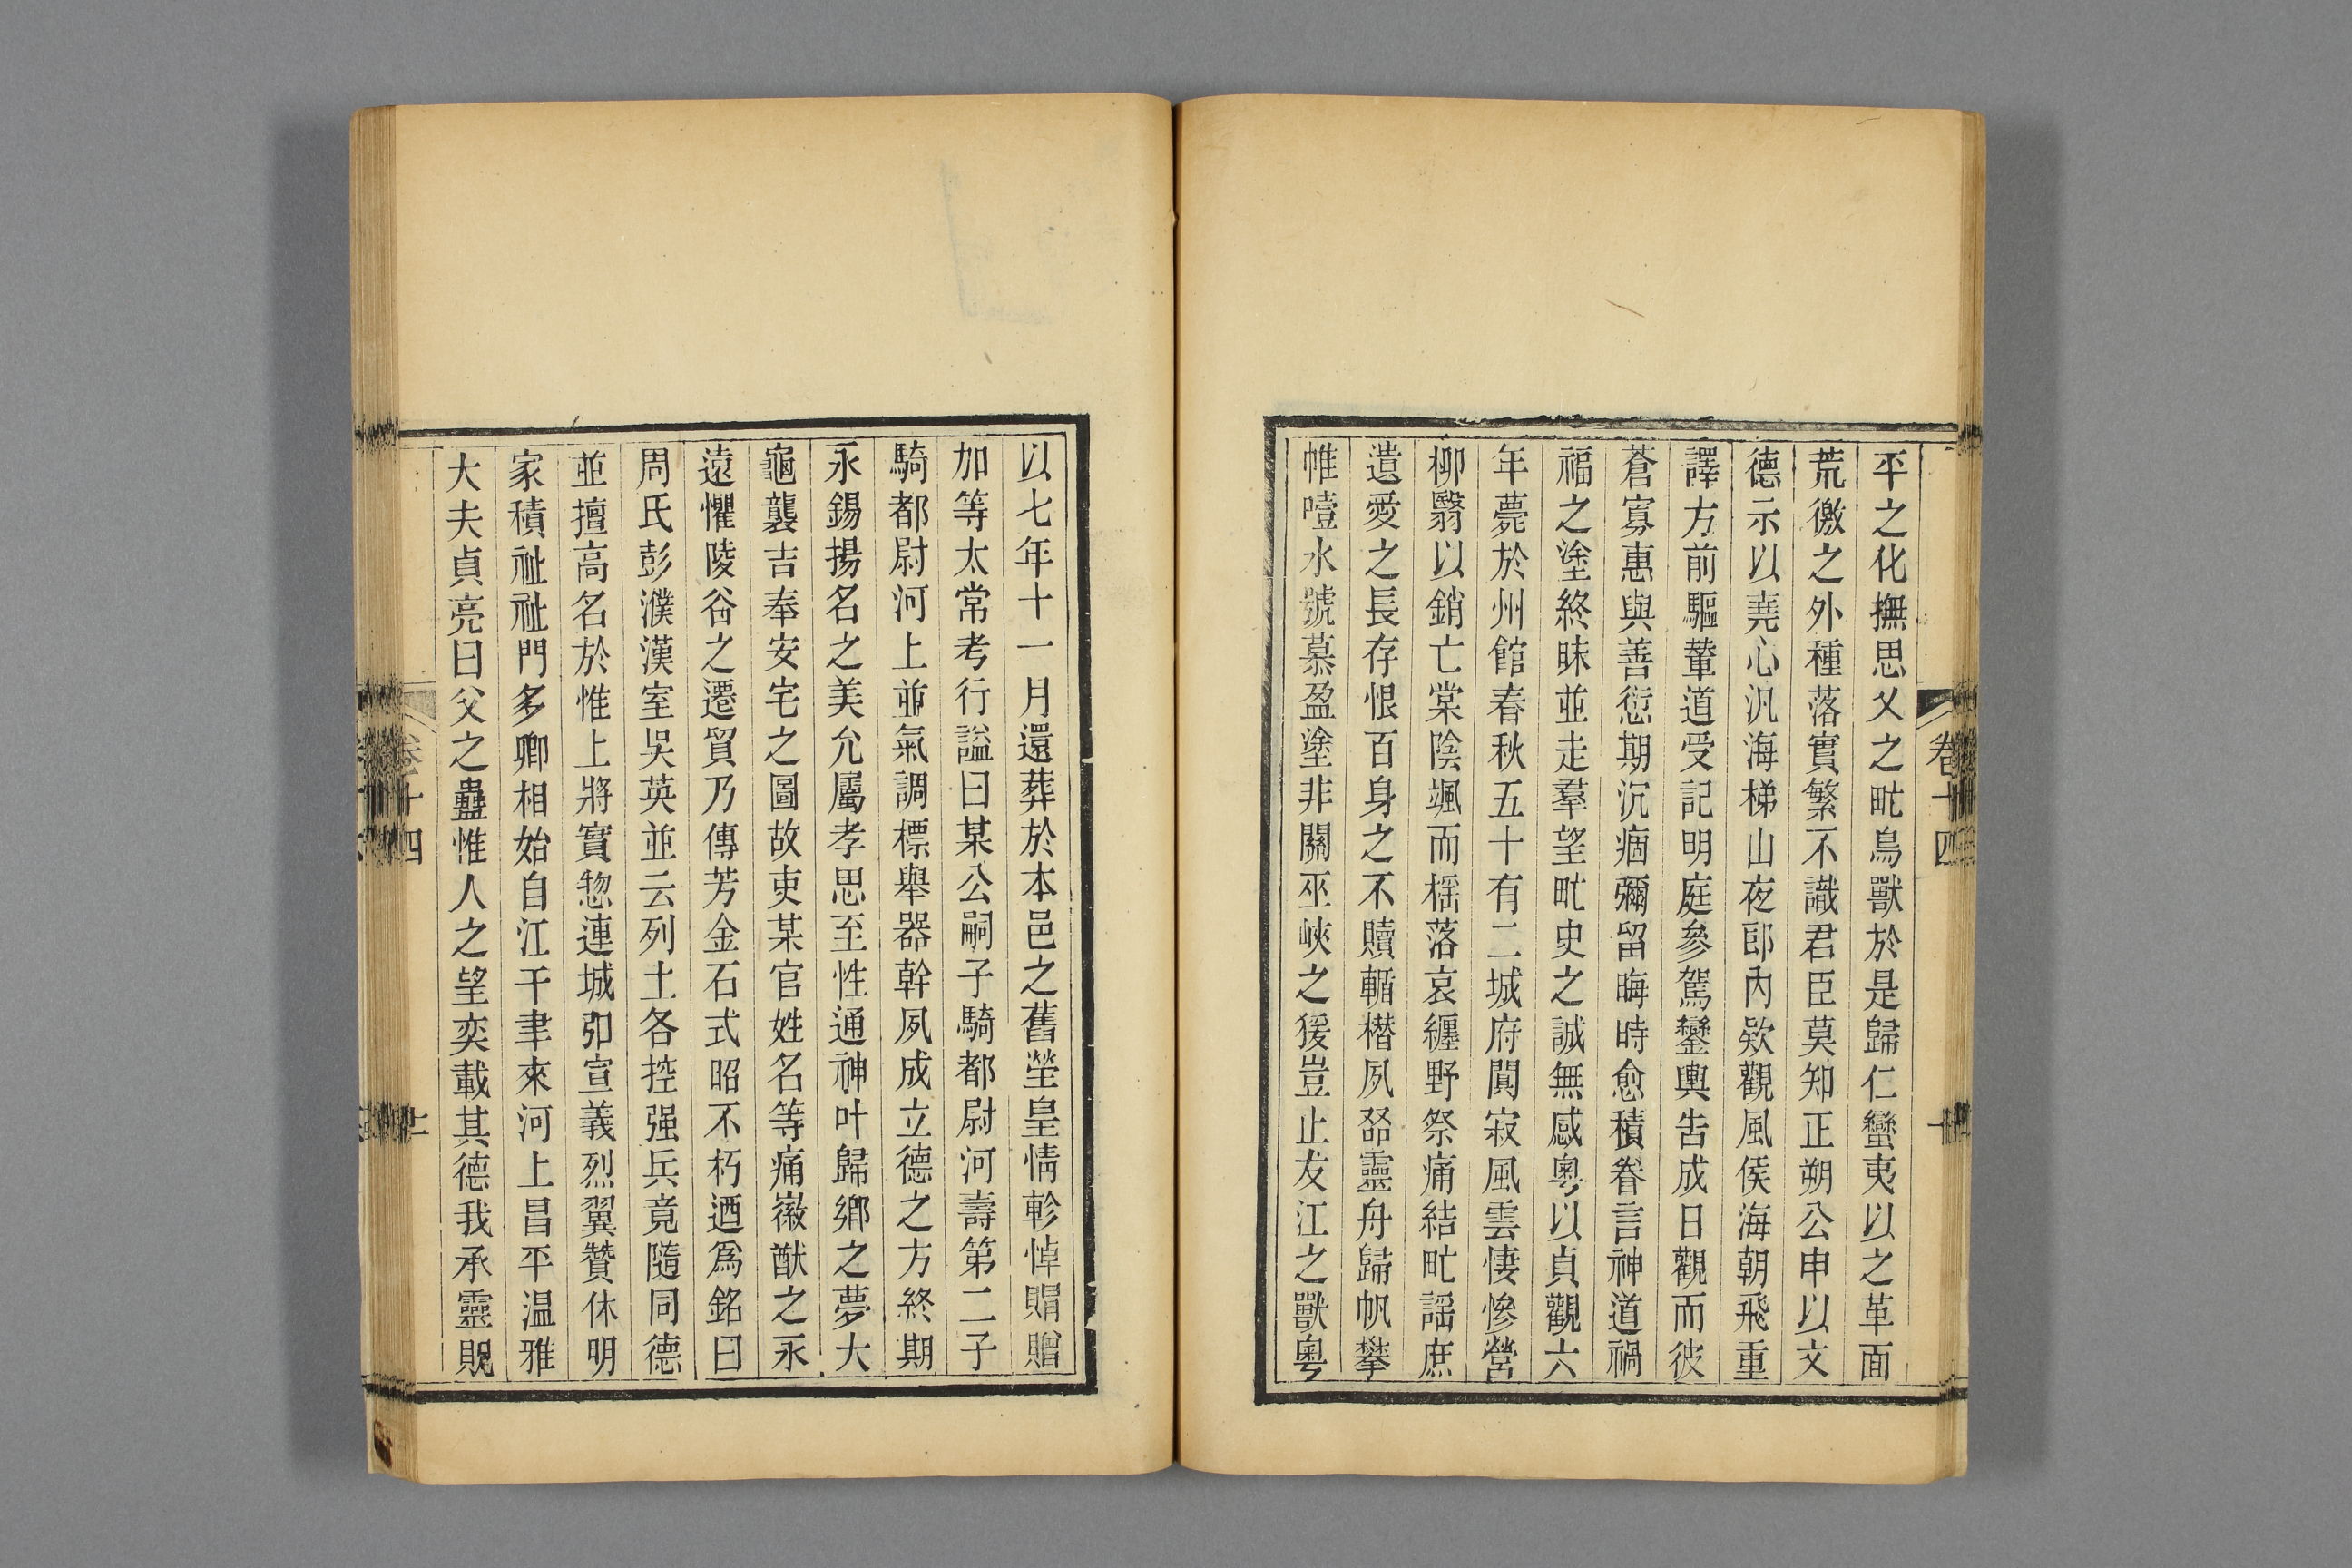 平之化撫思乂之甿鳥獸於是歸仁蠻夷以之革面
荒徼之外種落實繁不識君臣莫知正朔公申以文
德示以堯心汎海梯山夜郎內欵觀風侯海朝飛重
譯方前驅蕐道受記明庭參駕鑾輿告成日觀而彼
蒼寡惠與善愆期沉痼彌留晦時愈積眷言神道禍
福之塗終昧並走羣望甿史之誠無感粵以貞觀六
年薨於州館春秋五十有二城府闃寂風雲悽慘營
柳翳以銷亡棠陰颯而榣落哀纏野祭痛結甿謡庶
遺愛之長存恨百身之不贖輴楷夙帑靈舟歸帆攀
帷噎水號慕盈塗非關巫峽之猨豈止友江之獸粵
卷十四
以七年十一月還葬於本邑之舊塋皇情軫悼賵贈
加等太常考行謚曰某公嗣子騎都尉河壽第二子
騎都尉河上並氣調標舉器幹夙成立德之方終期
永錫揚名之美允屬孝思至性通神叶歸鄉之夢大
龜襲吉奉安宅之圖故吏某官姓名等痛徽猷之永
遠懼陵谷之遷貿乃傳芳金石式昭不朽迺爲銘曰
周氏彭濮漢室吳英並云列土各控强兵竟隨同德
並擅高名於惟上將寶惣連城卬宣義烈翼贊休明
家積祉祉門多卿相始自江干聿來河上昌平温雅
大夫貞亮曰父之蠱惟人之望奕載其德我承靈貺
卷十四